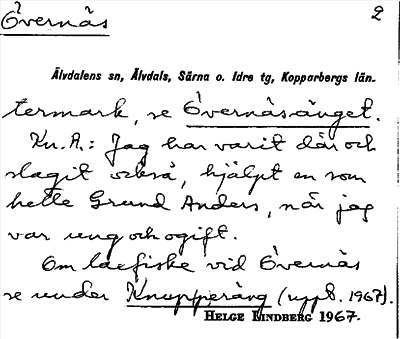 Övernäs 2
Älvdalens sn, Älvdals, Särna o. Idre tg, Kopparbergs län.
termark, se Övernäsänget.
Kn. A.: Jag har varit där och
slagit också, hjälpt en som
hette Grund Anders, när jag
var ung och ogift.
Om laxfiske vid Övernäs
se under Knupperäng (uppt. 1967).
HELGE LINDBERG 1967.